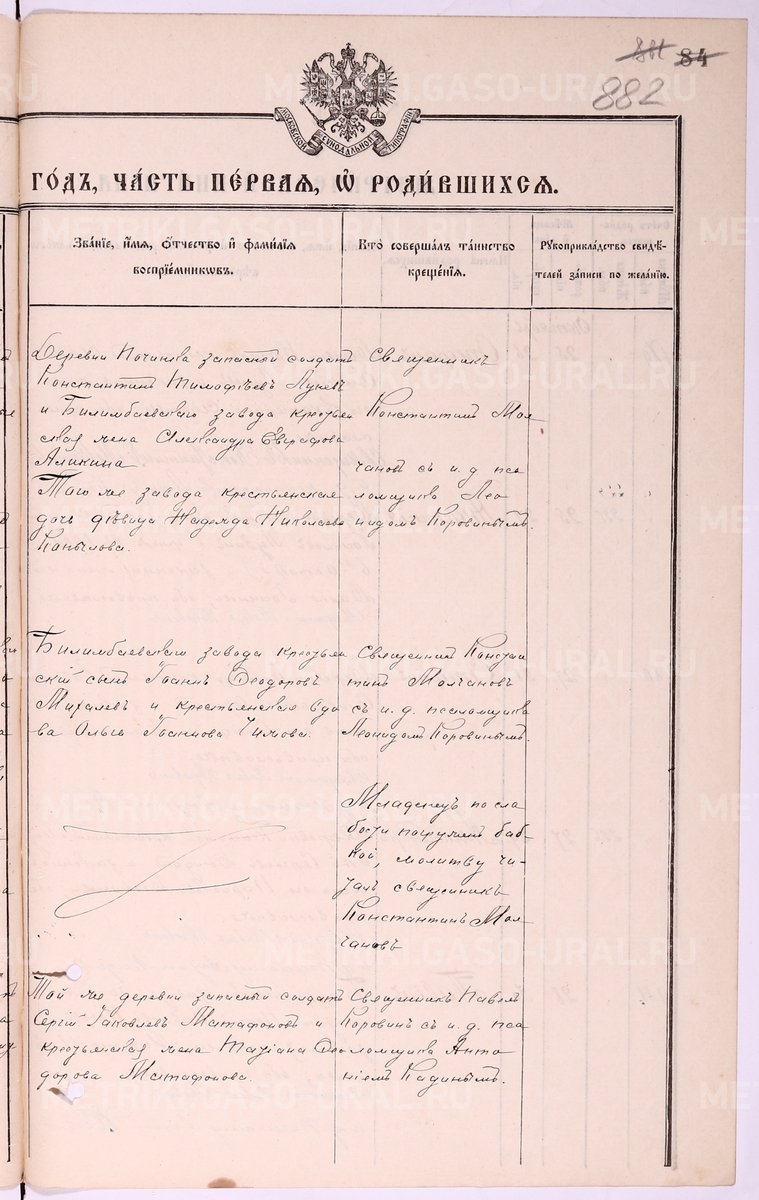 881 84
882
МОСКОВСКОЙ СѴНОДАЛЬНОЙ ТИПОГРАФІИ
ГОДЪ, ЧАСТЬ ПЕРВАЯ, Ѡ РОДИВШИХСЯ.
Званіе, имя, отчество и фамилія
воспріемниковъ.
Кто совершалъ таинство
крещенія.
Рукоприкладство свидѣ-
телей записи по желанію.
Деревни Починка запасной солдатъ
Константинъ Тимофѣевъ Луневъ
и Билимбаевскаго завода крестьян
ская жена Александра Евграфова
Аликина
Того же завода крестьянская
дочь дѣвица Надежда Николаева
Копылова.
Священникъ
Константинъ Мол
чановъ съ и. д. пса
ломщика Лео
нидомъ Коровинымъ.
Билимбаевскаго завода крестьян
скій сынъ Іоаннъ Ѳеодоровъ
Михалевъ и крестьянская вдо
ва Ольга Іоаннова Чижова.
Священникъ Констан
тинъ Молчановъ
съ и. д. псаломщика
Леонидомъ Коровинымъ.
Младенецъ по сла
бости погруженъ баб
кой, молитву чи-
талъ священникъ
Константинъ Мол
чановъ
Той же деревни запасный солдатъ
Сергій Іаковлевъ Матафоновъ и
крестьянская жена Татіана Ѳео
дорова Матафонова.
Священникъ Павелъ
Коровинъ съ и. д. пса
ломщика Анто
ніемъ Кадинымъ.
METRIKI.GASO-URAL.RU